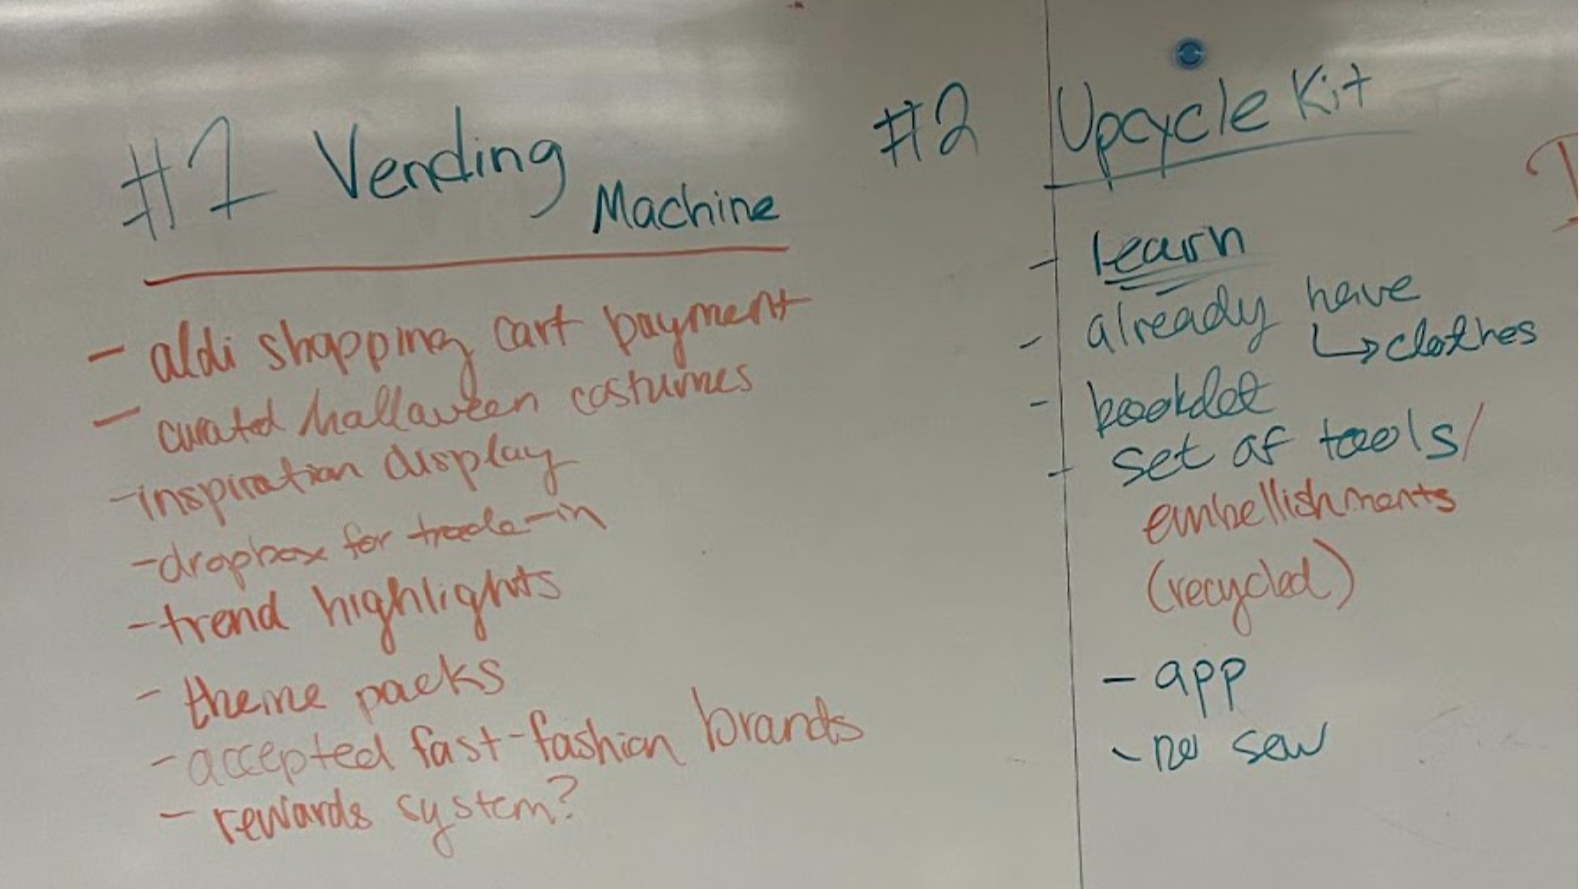 #1 Vending Machine
- aldi shopping cart payment
- curated halloween costumes
- inspiration display
- dropbox for trade-in
- trend highlights
- theme packs
- accepted fast-fashion brands
- rewards system?
#2 Upcycle Kit
- learn
- already have
↳ clothes
- booklet
- set of tools/
embellishments
(recycled)
- app
- no sew